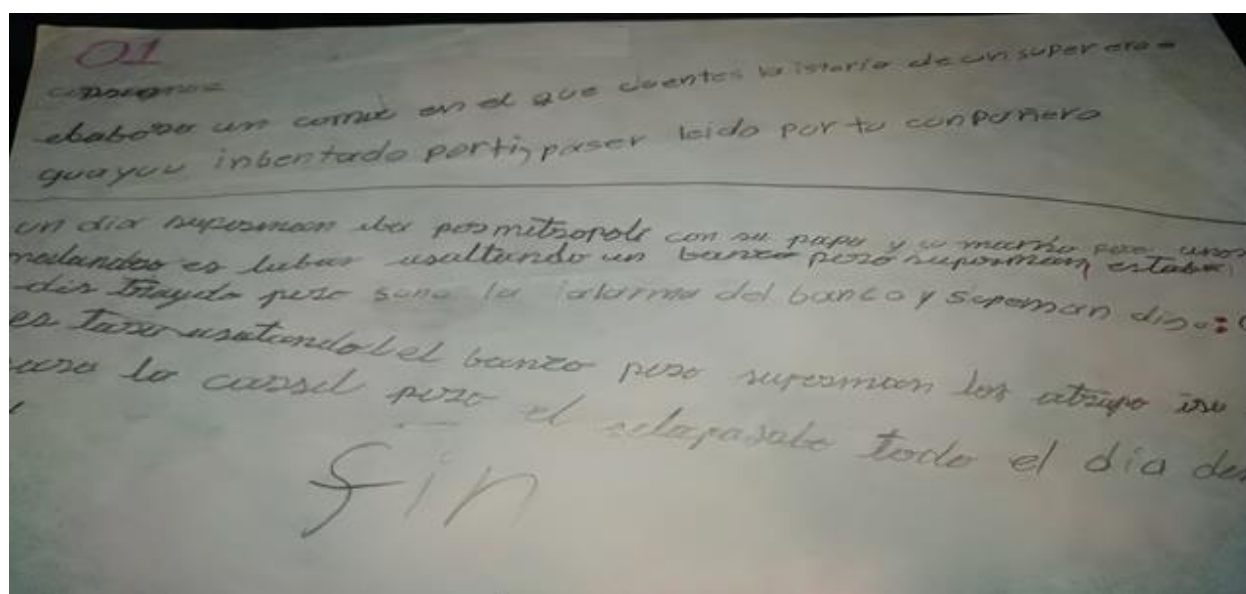 01
elaborar un comic en el que cuentes la istoria de un super eroe
guayuu inbentado porti, paser leido por tu conpañero
un dia superman iba por mitropoli con su papa y su mamá pero unos
es tabar asaltando un banco pero superman estaba
dis traydo pero sono la alarma del banco y supeman dijo:
es taser asatando el banco pero superman los atrapo
para la carsel pero el selapasabe todo el dia
fin